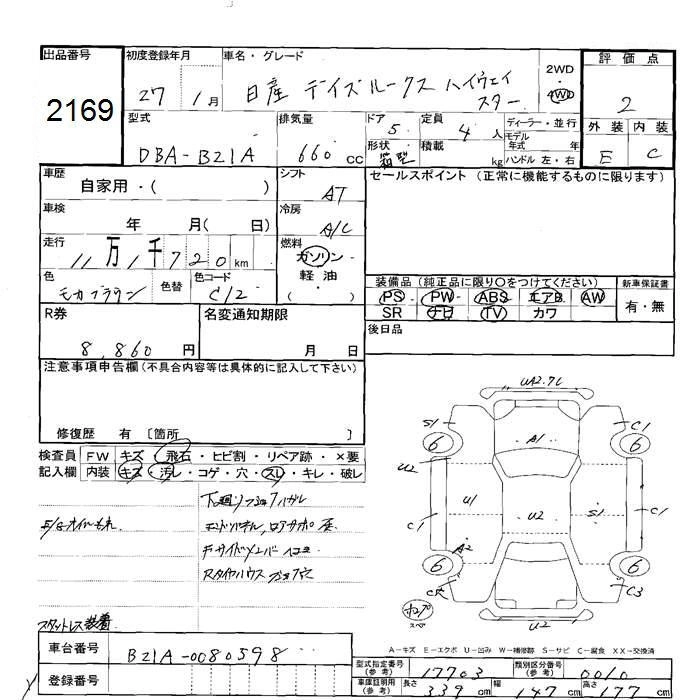 出品番号 初度登録年月 車名・グレード 評価点
2169 27 1月 日産 デイズルークス ハイウェイスター 2WD・4WD 2
型式 排気量 ドア 5 定員 4人 ディーラー・並行 外装 内装
DBA-B21A 660cc 形状 箱型 積載 kg モデル年式 年 ハンドル 左・右 E C
車歴 シフト セールスポイント (正常に機能するものに限ります)
自家用・( ) AT
車検 冷房
年 月( 日) A/C
走行 燃料
11万1千720km ガソリン・軽油・( )
色 色替 色コード 装備品 (純正品に限り○をつけてください) 新車保証書
モカブラウン C12 PS・PW・ABS・エアB・AW 有・無
SR ナビ TV カワ
R券 名変通知期限 後日品
8,860円 月 日
注意事項申告欄 (不具合内容等は具体的に記入して下さい)
修復歴 有 〔箇所 〕
検査員 FW キズ・飛石・ヒビ割・リペア跡・×要
記入欄 内装 キズ・汚レ・コゲ・穴・スレ・キレ・破レ
E/Gオイルもれ
Fサイドメンバー
Rタイヤハウス
スタットレス装着
UA2.7C
S1 C1
6 A1 6
U2
C1 U1 U2 S1 C1
A2
6 6
C3
U2
A-キズ E-エクボ U-凹み W-補修跡 S-サビ C-腐食 XX-交換済
車台番号 B21A-0080598
登録番号
型式指定番号 (参考) 17703 類別区分番号 (参考) 0010
車庫証明用 (参考) 長さ 339cm 幅 147cm 高さ 177cm